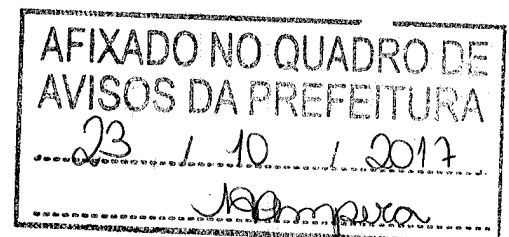 AFIXADO NO QUADRO DE
AVISOS DA PREFEITURA
23 / 10 / 2017